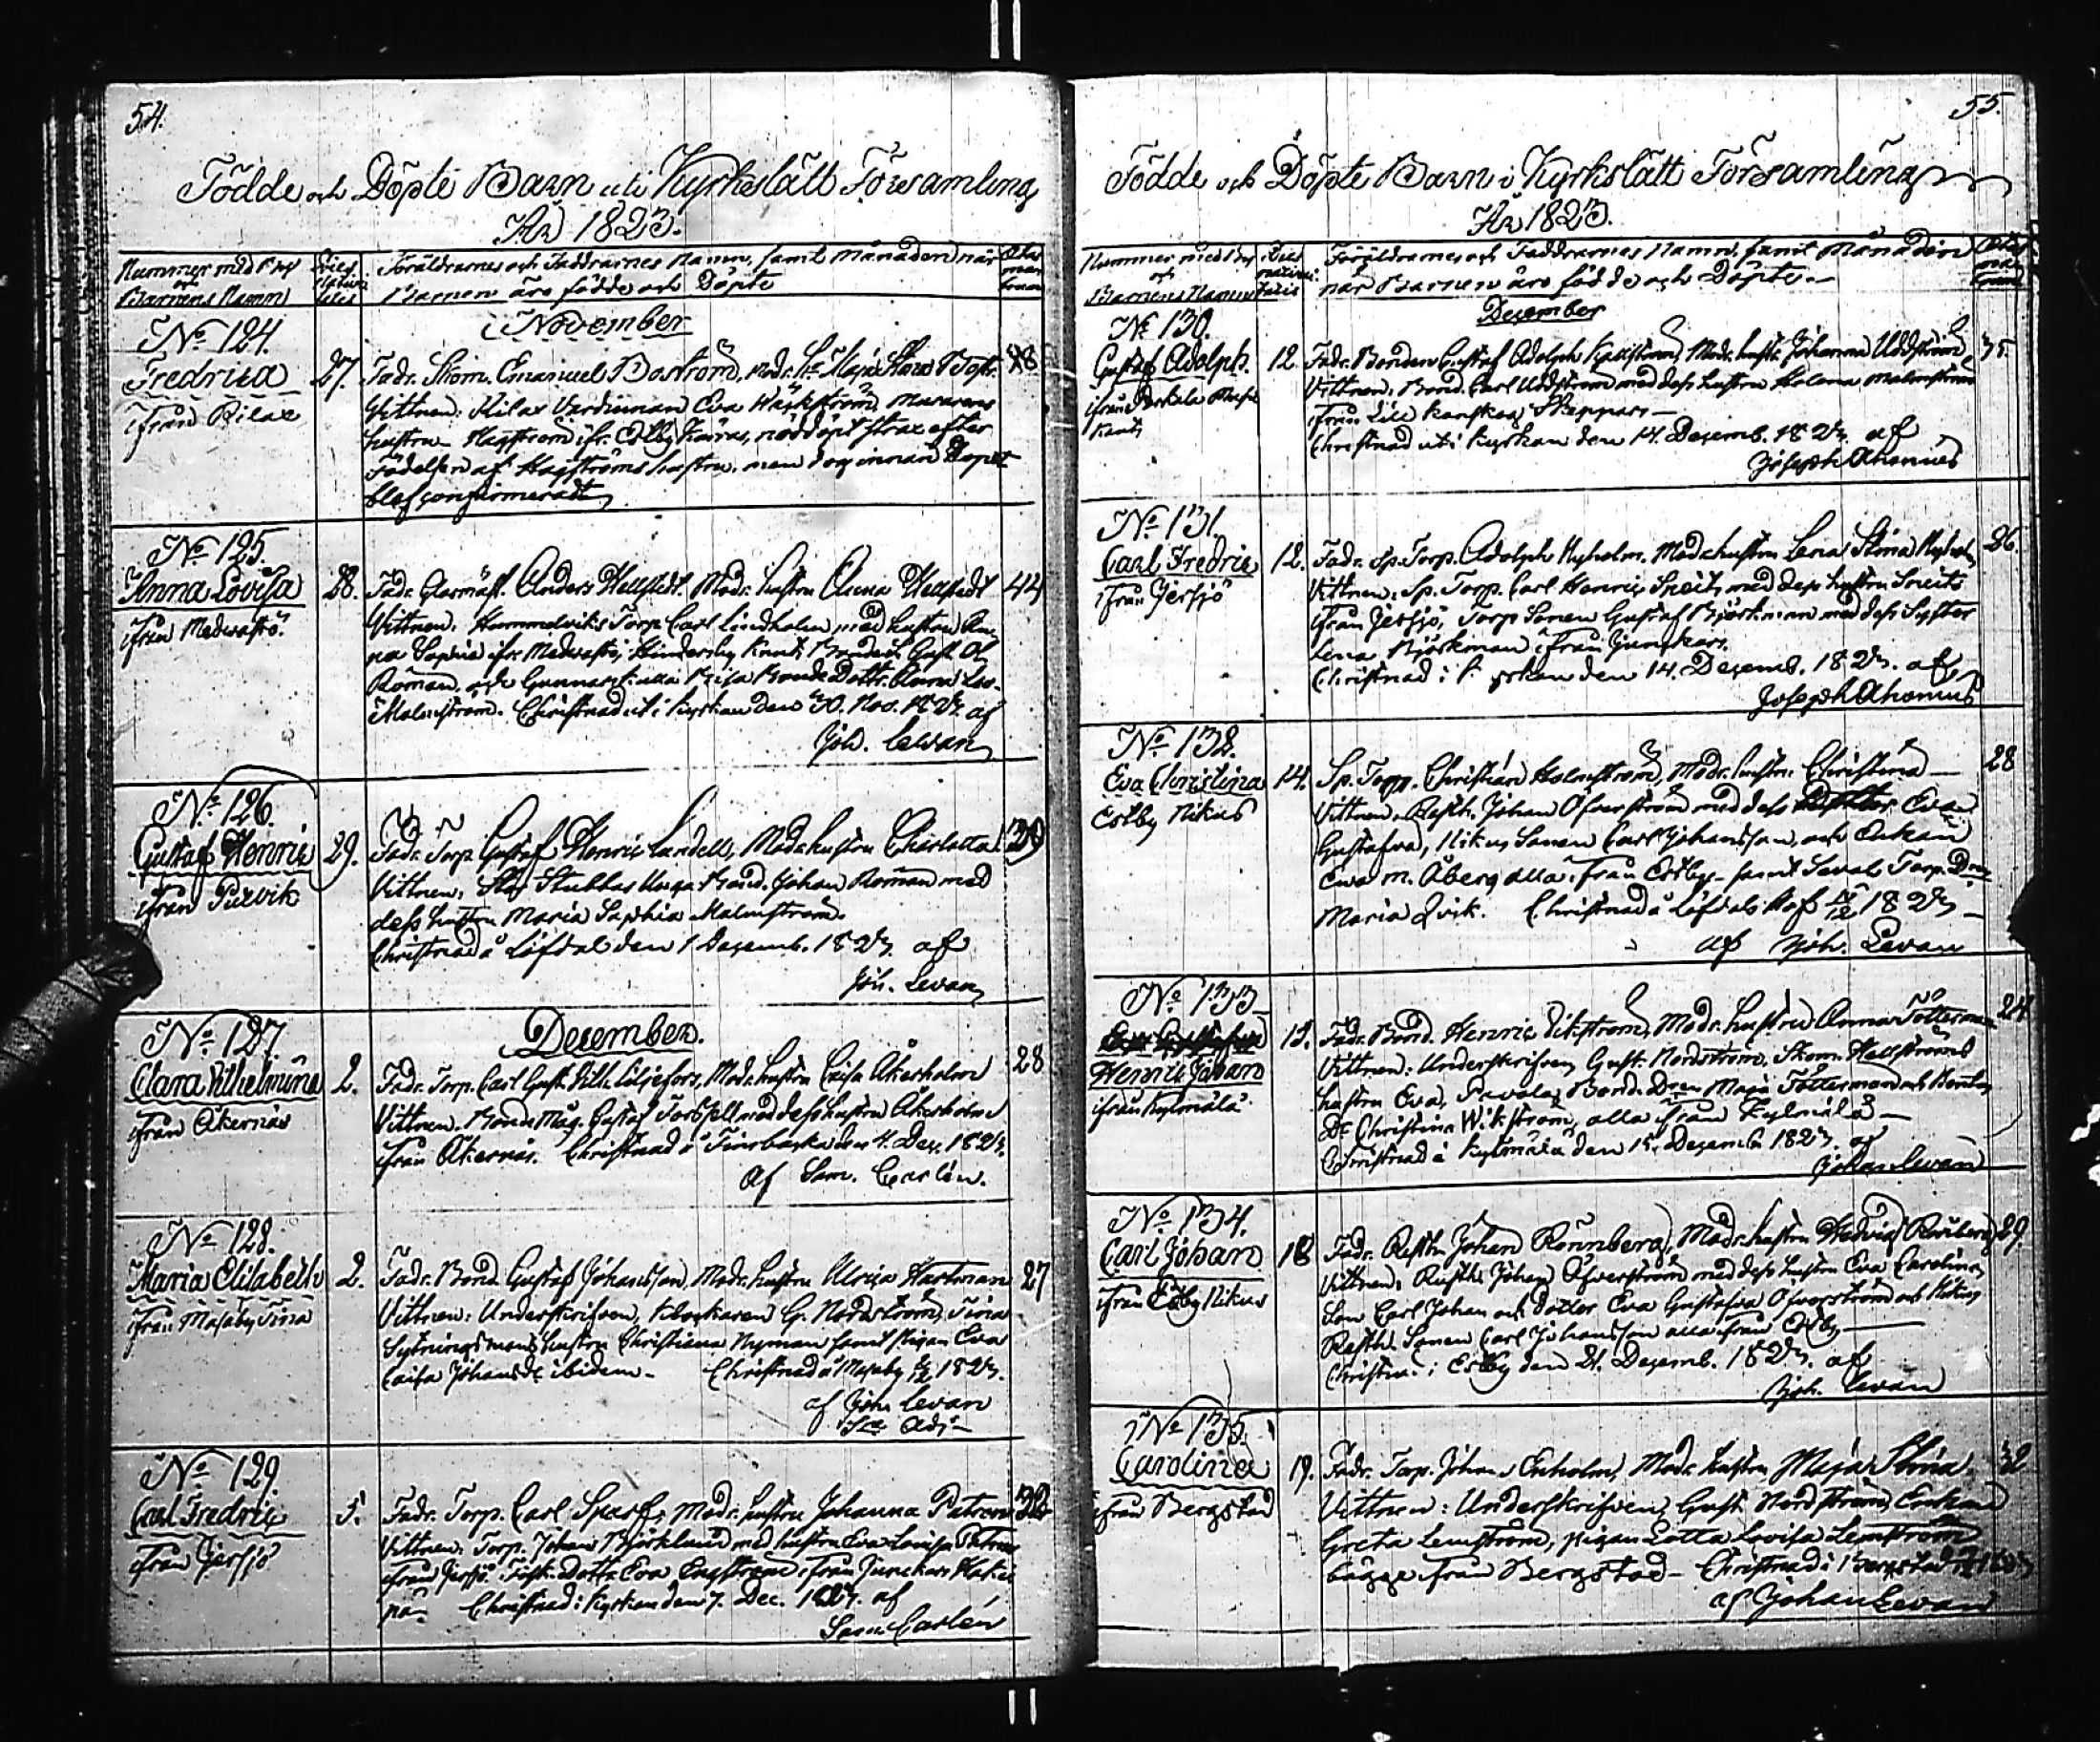 54.
Födde och Döpte Barn uti Kyrkslätt Församling
År 1823.
Nummer med
och
Barnens Namn
Föräldrarnes och Faddrarnes Namn, samt Månaden när
Barnen äro födde och Döpte
November
No 124.
Fredrica
ifrån Bilax
27.
Fadr. Skom. Emanuel Boström, Modr. Maja Stina
Vittnen: Eva
hustru Hagström ifr. Estby nöddöpt strax efter
födelsen af Hagströms hustru, men innan Dopet
blef
No 125.
Anna Lovisa
ifrån Medvastö.
28.
Fadr. Glasmäst. Anders Hellstedt. Modr. hustru Anna Hellstedt
44
Vittnen: Hummelviks Torp. Carl Lindholm med hustru An-
na Sophia ifr. Medvastö, Hindersby Knuts Gust. Ad.
Roman, och Gunnars Bonde Dottr. Anna Lov.
Malmström. Christnad uti Kyrkan den 30. Nov. 1823. af
Joh. Levan
No 126.
Gustaf Henric
ifrån Purvik
29.
Fadr. Torp. Gustaf Henric Landell, Modr. hustru Charlotta L.
39
Vittnen: Stor Stubbas Bond. Johan Roman med
dess hustru Maria Sophia Malmström.
Christnad å Löfdal den 1 Decemb. 1823. af
Joh. Levan
December.
No 127.
Clara Vilhelmina
ifrån Åkernäs
2.
Fadr. Torp. Carl Gust. Vilh. Liljefors, Modr. hustru Caisa Åkerholm
28
Vittnen. Bonde Måg. Gustaf Forssell med dess hustru Åkerholm
ifrån Åkernäs. Christnad å Finsbacka den 4. Dec. 1823.
af Sam. Carlén.
No 128.
Maria Elisabeth
ifrån Masaby Sina
2.
Fadr. Bond. Gustaf Johansson, Modr. hustru Ulrica Hartman
27
Vittnen: Underskrifven, Klockaren G. Nordström, Sina
Sytningsmans hustru Christina Nyman samt pigan Eva
Caisa Johansdr. ibidem. Christnad å Masaby 1823.
af Joh. Levan
Adj.
No 129.
Carl Fredric
ifrån Jersjö
5.
Fadr. Torp. Carl Sparf, Modr. hustru Johanna
Vittnen: Torp. Johan Björklund med hustru Eva Lovisa
ifrån Jersjö. Dottr. Eva Engström ifrån Junckars
Christnad i Kyrkan den 7. Dec. 1823. af
Sam. Carlén
55.
Födde och Döpte Barn i Kyrkslätt Församling
År 1823.
Nummer med
och
Barnens Namn
Föräldrarnes och Faddrarnes Namn, samt Månaden
när Barnen äro födde och Döpte.
December
No 130.
Gustaf Adolph.
12.
Fadr. Bonden Gustaf Adolph Modr. hustr. Johanna Uddström
35
Vittnen: Bond. Carl Uddström med dess hustru Helena Malmström
ifrån Lill Kanskog Skeppars
Christnad uti Kyrkan den 14. Decemb. 1823. af
Joseph Ahonius
No 131.
Carl Fredric
ifrån Jersjö
12.
Fadr. Sp. Torp. Adolph Nyholm. Modr. hustru Lena Stina Nyholm
26.
Vittnen: Sp. Torp. Carl Henric Sneitz med dess hustru Sneitz
ifrån Jersjö, Torp. Sonen Gustaf Björkman med dess Syster
Lena Björkman ifrån Junckars.
Christnad i Kyrkan den 14. Decemb. 1823. af
Joseph Ahonius
No 132.
Eva Christina
Estby Nikus
14.
Sp. Torp. Christian Holmström, Modr. hustru Christina
28
Vittnen. Rusth. Johan Öfverström med dess Eva
Gustafva, Nikus Sonen Carl Johansson, och Enkan
Eva m. Åberg alla ifrån Estby samt Torp. Dr.
Maria Qvik. Christnad å Löfdals Hof 1823
af Joh. Levan
No 133
Henric Johan
ifrån Kylmälä
Fadr. Bond. Henric Vikström, Modr. hustru Anna Fötterman
24
Vittnen: Underskrifven, Gust. Nordström, Skom. Hellströms
hustru Eva, Bond. Dren Maja Fötterman och
Dr. Christina Wikström, alla ifrån Kylmälä
Christnad i Kylmälä den 15. Decemb. 1823. af
Johan Levan
No 134.
Carl Johan
ifrån Estby Nikus
18
Fadr. Rusth. Johan Rönnberg, Modr. hustru Hedvig Rönnberg
29
Vittnen: Rusth. Johan Öfverström med dess hustru Eva Carolina,
Son Carl Johan och Dotter Eva Gustafva Öfverström och Nikus
Rusth. Sonen Carl Johansson alla ifrån Estby
Christn. i Estby den 21. Decemb. 1823. af
Joh. Levan
No 135.
Carolina
ifrån Bergstad
19.
Fadr. Torp. Johan Enholm, Modr. hustru Maja Stina
32
Vittnen: Underskrifven, Gust. Nordström, Enkan
Greta Lemström, pigan Lotta Lovisa Lemström
bägge ifrån Bergstad. Christnad i Bergstad
af Johan Levan